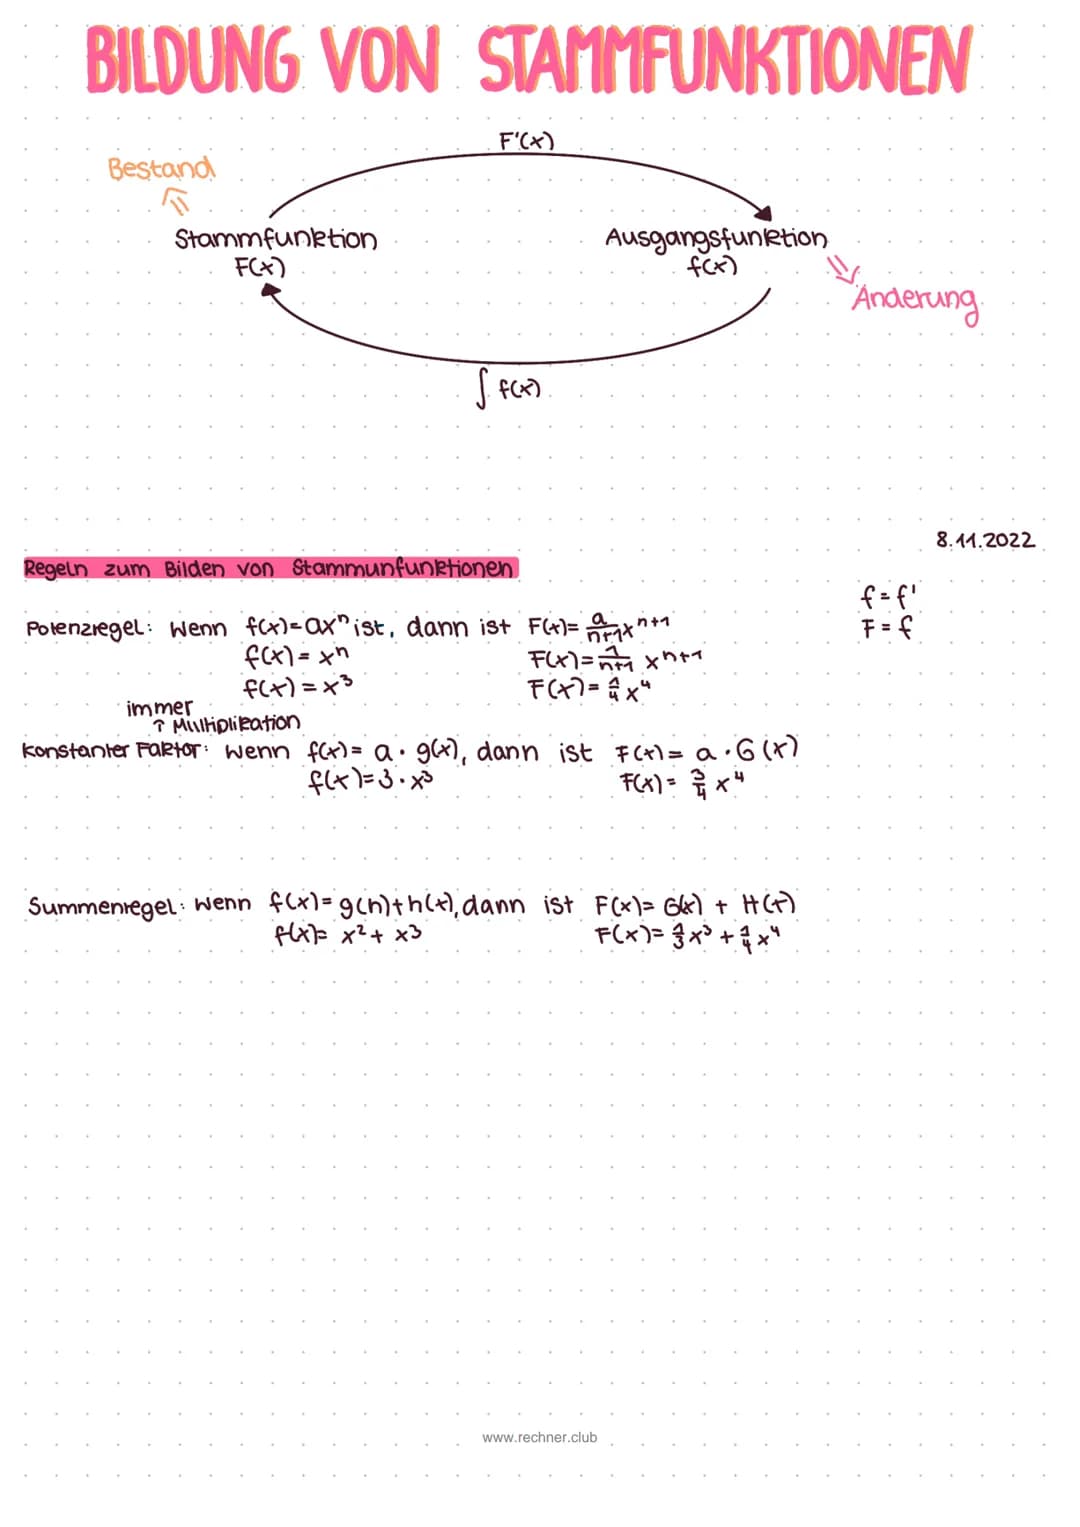 BILDUNG VON STAMMFUNKTIONEN
F'(x)
Bestand
Stammfunktion
F(x)
Ausgangsfunktion
f(x)
Änderung
∫ f(x)
8.11.2022
Regeln zum Bilden von Stammunfunktionen
f = f'
F = f
Potenzregel: Wenn f(x)=ax^n ist, dann ist F(x)= a/(n+1) x^(n+1)
f(x) = x^n F(x)= 1/(n+1) x^(n+1)
f(x) = x³ F(x)= 1/4 x⁴
immer
↑ Multiplikation
Konstanter Faktor: Wenn f(x)= a · g(x), dann ist F(x)= a · G(x)
f(x)=3·x³ F(x)= 3/4 x⁴
Summenregel: Wenn f(x)= g(h)+h(x), dann ist F(x)= G(x) + H(x)
f(x)= x² + x³ F(x)= 1/3 x³ + 1/4 x⁴
www.rechner.club